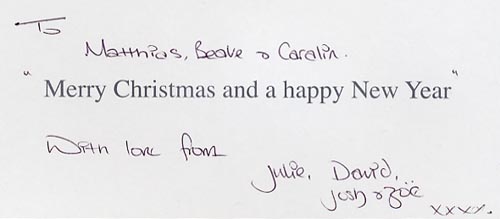 To
Matthias, Beate & Caralin.
"Merry Christmas and a happy New Year"
With love from
Julie, David,
Josh & Zoë
xxxx.